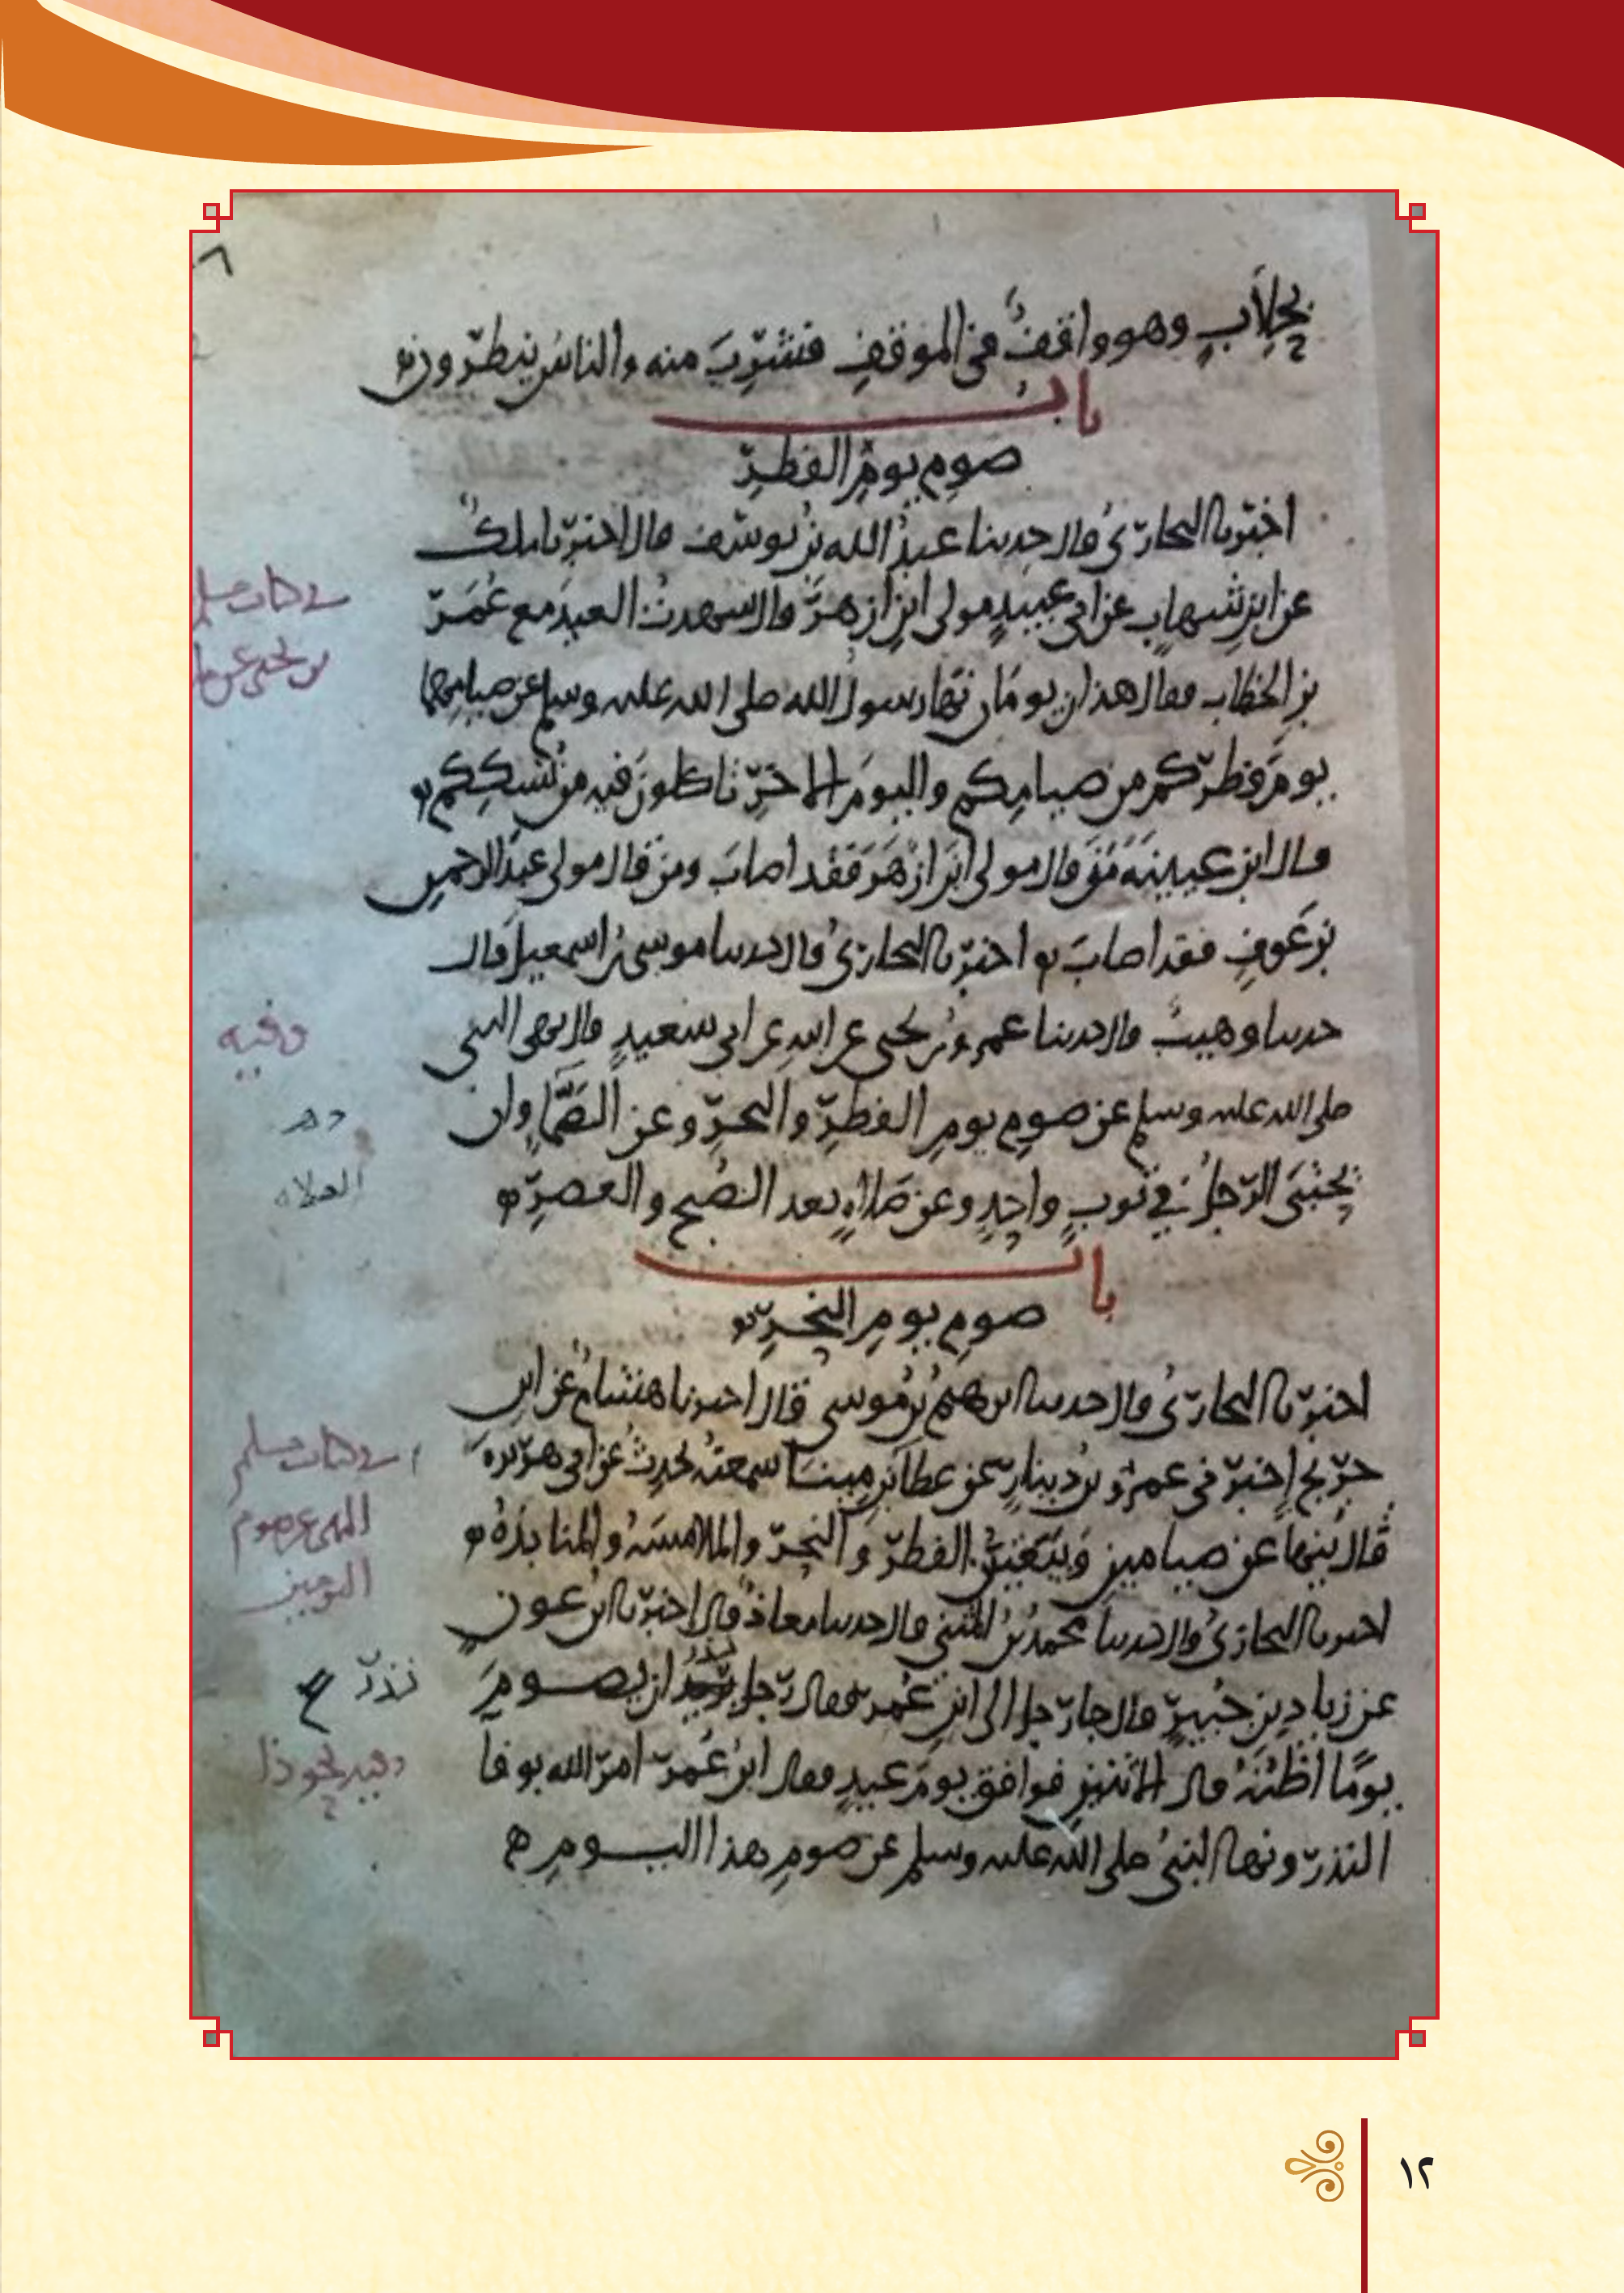 ٨
بحلابٍ وهو واقفٌ في الموقفِ فشرِبَ منه والناسُ ينظرون
باب
صومِ يومِ الفطرِ
اخبرنا البخاريُ قال حدثنا عبدُ الله بنُ يوسف قال اخبرنا ملكٌ
عن ابنِ شهابٍ عن ابي عبيدٍ مولى ابنِ ازهرَ قال شهدتُ العيدَ مع عُمَرَ
بنِ الخطابِ فقال هذان يومَان نها رسولُ الله صلى الله عليه وسلم عن صيامِهما
يومَ فطرِكم من صيامِكم واليومَ الاخرَ تاكلونَ فيه من نُسُكِكم
قال ابن عيينةَ مَن قال مولى ابنِ ازهرَ فقد اصابَ ومن قال مولى عبدِ الرحمنِ
بنِ عوفٍ فقد اصابَ اخبرنا البخاريُ قال حدثنا موسى بنُ اسمعيل قال
حدثنا وهيبٌ قال حدثنا عمرُو بنُ يحيى عن ابيهِ عن ابي سعيدٍ قال نهى النبي
صلى الله عليه وسلم عن صومِ يومِ الفطرِ والنحرِ وعن الصَّمَّا وان
يحتبيَ الرجلُ في ثوبٍ واحدٍ وعن صلاةٍ بعد الصُبحِ والعصرِ
باب
صومِ يومِ النحرِ
اخبرنا البخاريُ قال حدثنا ابرهيمُ بنُ موسى قال اخبرنا هشامٌ عن ابنِ
جريجٍ اخبرني عمرُو بنُ دينارٍ عن عطاءِ بنِ ميناَ سمعته يحدثُ عن ابي هريرةَ
قال ينهى عن صيامينِ وَبَيعَتينِ الفطرِ والنحرِ والملامسَةِ والمنابذةِ
اخبرنا البخاريُ قال حدثنا محمدُ بنُ المثنى قال حدثنا معاذٌ قال اخبرنا ابنُ عونٍ
عن زيادِ بنِ جُبيرٍ قال جا رجل الى ابنِ عُمرَ فقال رجل نذر ان يصومَ
يومًا اظُنُّهُ قال الاثنينِ فوافق يومَ عيدٍ فقال ابنُ عُمرَ امرَ الله بوفاَ
النذرِ ونها النبيُ صلى الله عليه وسلم عن صومِ هذا اليومِ
في كتاب مسلم
بن يحيى عن ما
وفيه
العلاه
في كتاب مسلم
النهي عن صوم
اليومين
نذرَ
وفيه نحو ذا
١٢